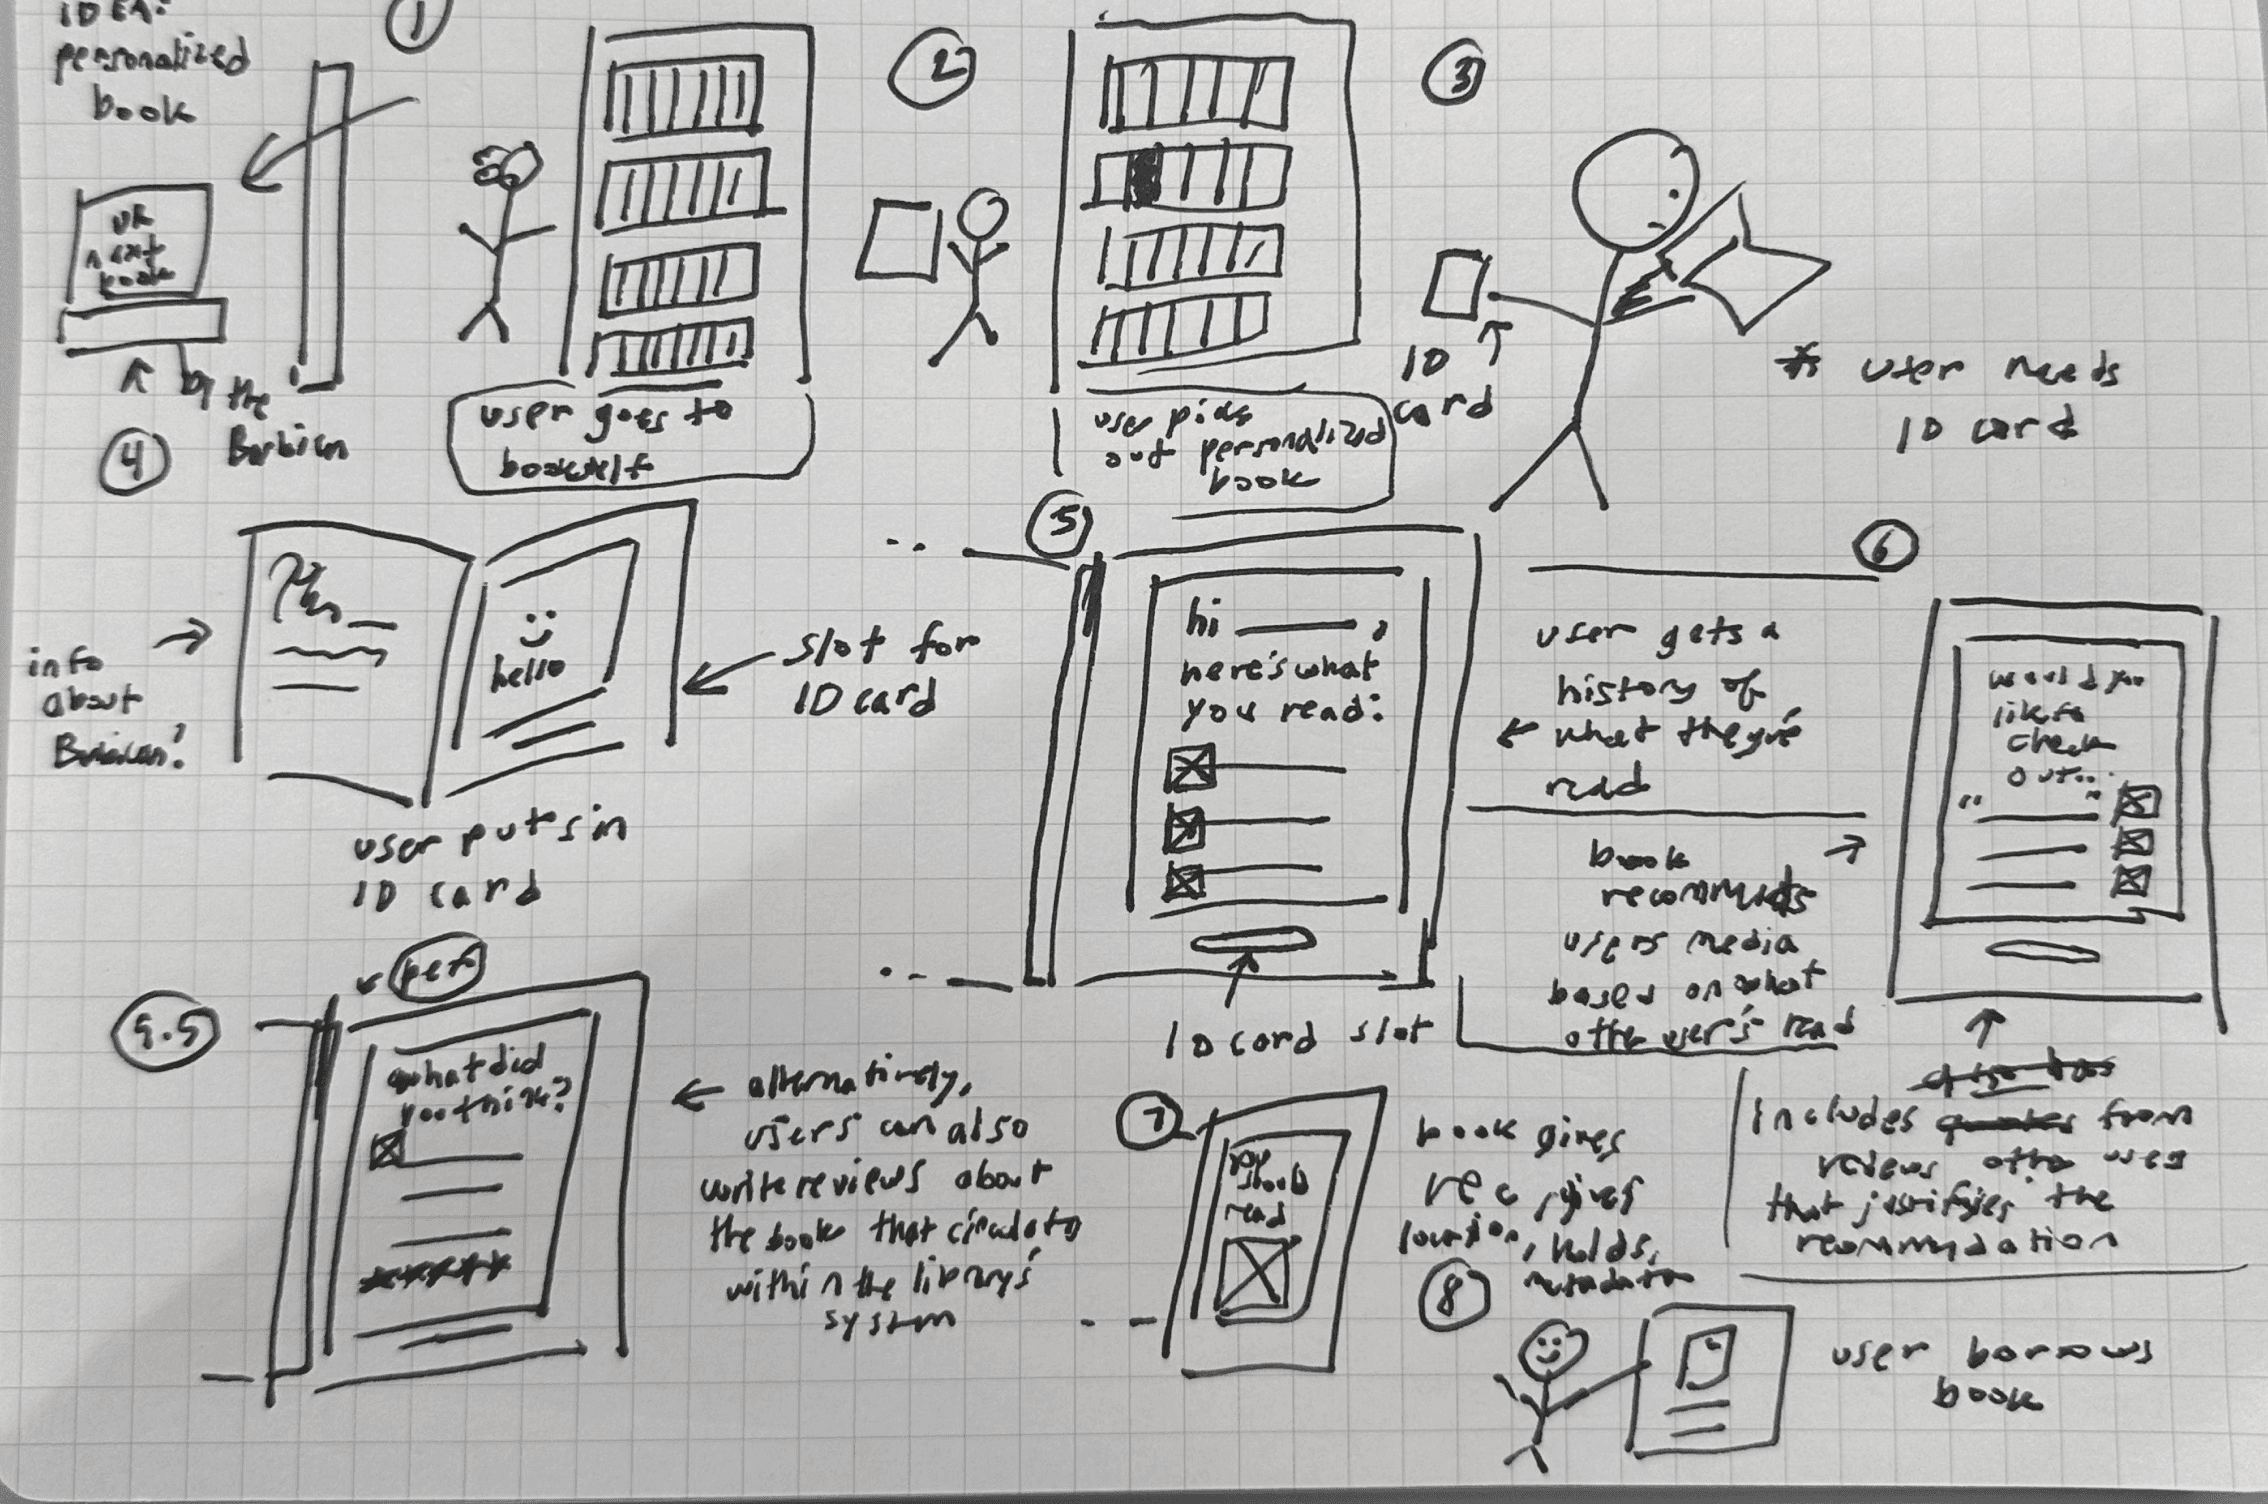 IDEA:
personalized
book
1
ur
next
book
by the
Barbican
user goes to
2
user picks
out personalized
book
3
ID
card
* user needs
ID card
4
info
about
Barbican!
hello
slot for
ID card
user puts in
ID card
5
hi ____,
here's what
you read:
ID card slot
user gets a
history of
what they've
read
6
would you
like to
check
out...
" "
book
recommends
users media
based on what
other user's read
includes from
reviews other users
that justifies the
recommendation
5.5
pen
what did
you think?
*****
alternatively,
users can also
write reviews about
the book that circulate
within the library's
system
7
you
should
read
book gives
rec, gives
location, holds,
metadata
8
user borrows
book